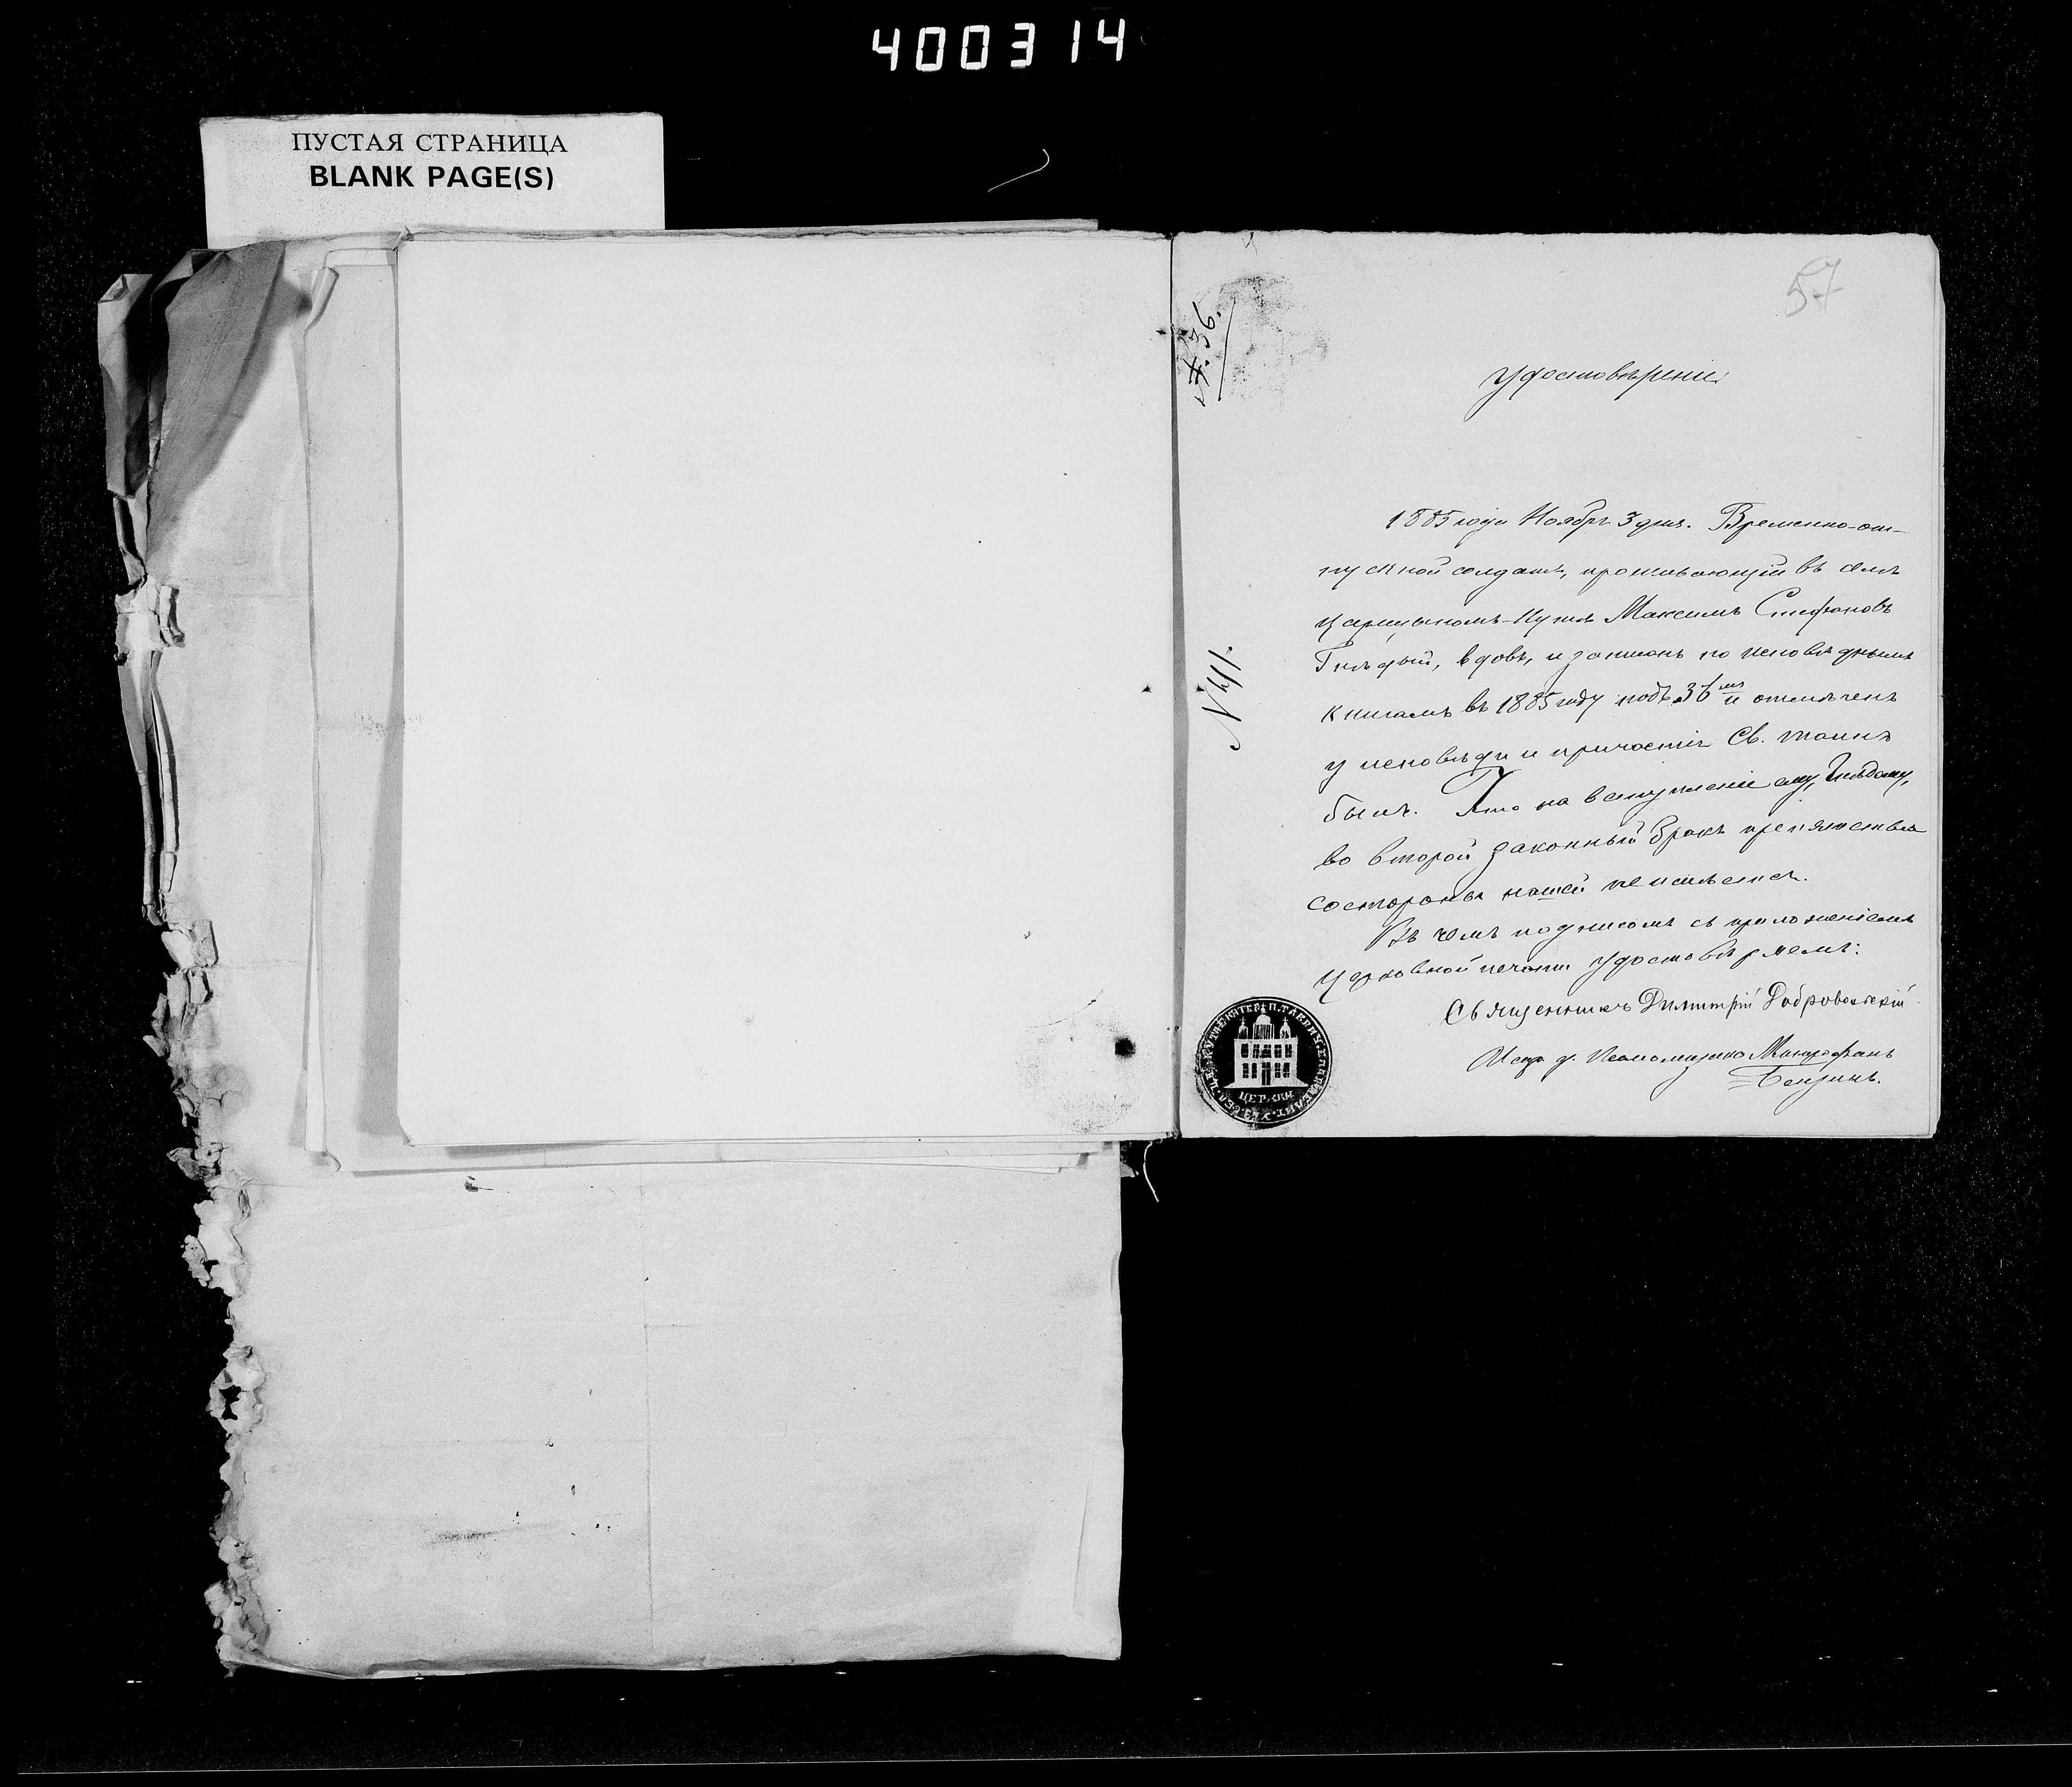 400314
ПУСТАЯ СТРАНИЦА
BLANK PAGE(S)
57
36.
N 41.
Удостовѣреніе
1885 года Ноября 3 дня. Временно-от-
пускной солдатъ, проживающій въ селѣ
Царицыномъ-Кутѣ Максимъ Стефановъ
Гнѣдый, вдовъ, и записанъ по исповѣднымъ
книгамъ въ 1885 году подъ 36 и отмѣченъ
у исповѣди и причастія Св. таинъ
былъ. Что на вступленіе ему, Гнѣдому,
во второй законный бракъ препятствія
состороны нашей не имѣется.
Въ чемъ подписомъ съ приложеніемъ
церковной печати удостовѣряемъ:
Священникъ Димитрій Добровольскій
Псаломщика Митрофанъ
ЦЕРКВИ